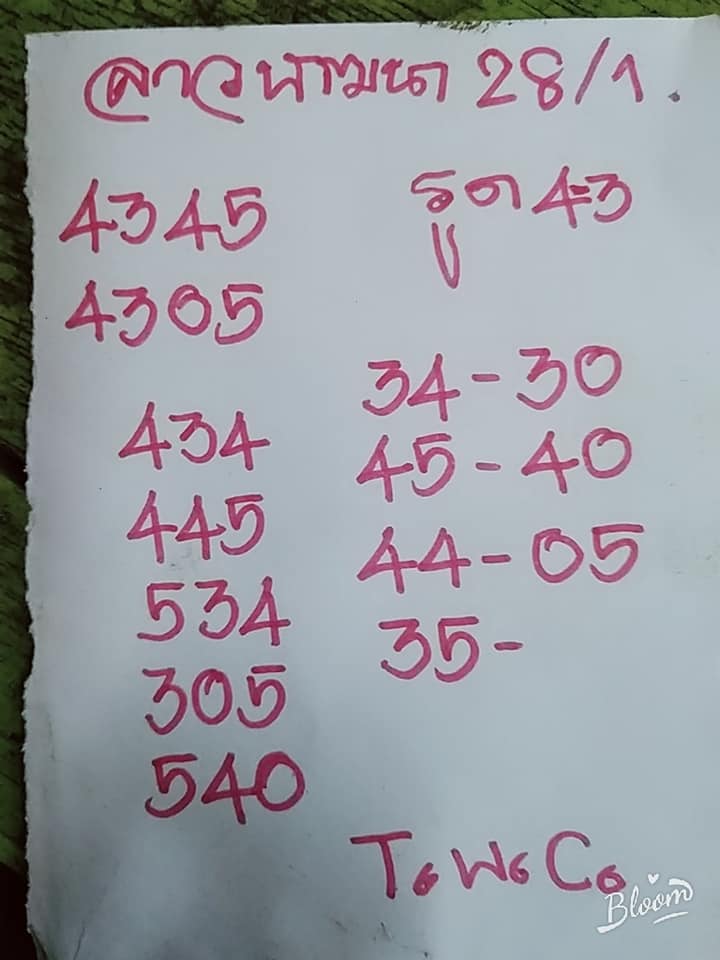 ลาวพัฒนา 28/1.
4345
4305
รูด 4-3
434
445
534
305
540
34-30
45-40
44-05
35-
T.W.C.
Bloom